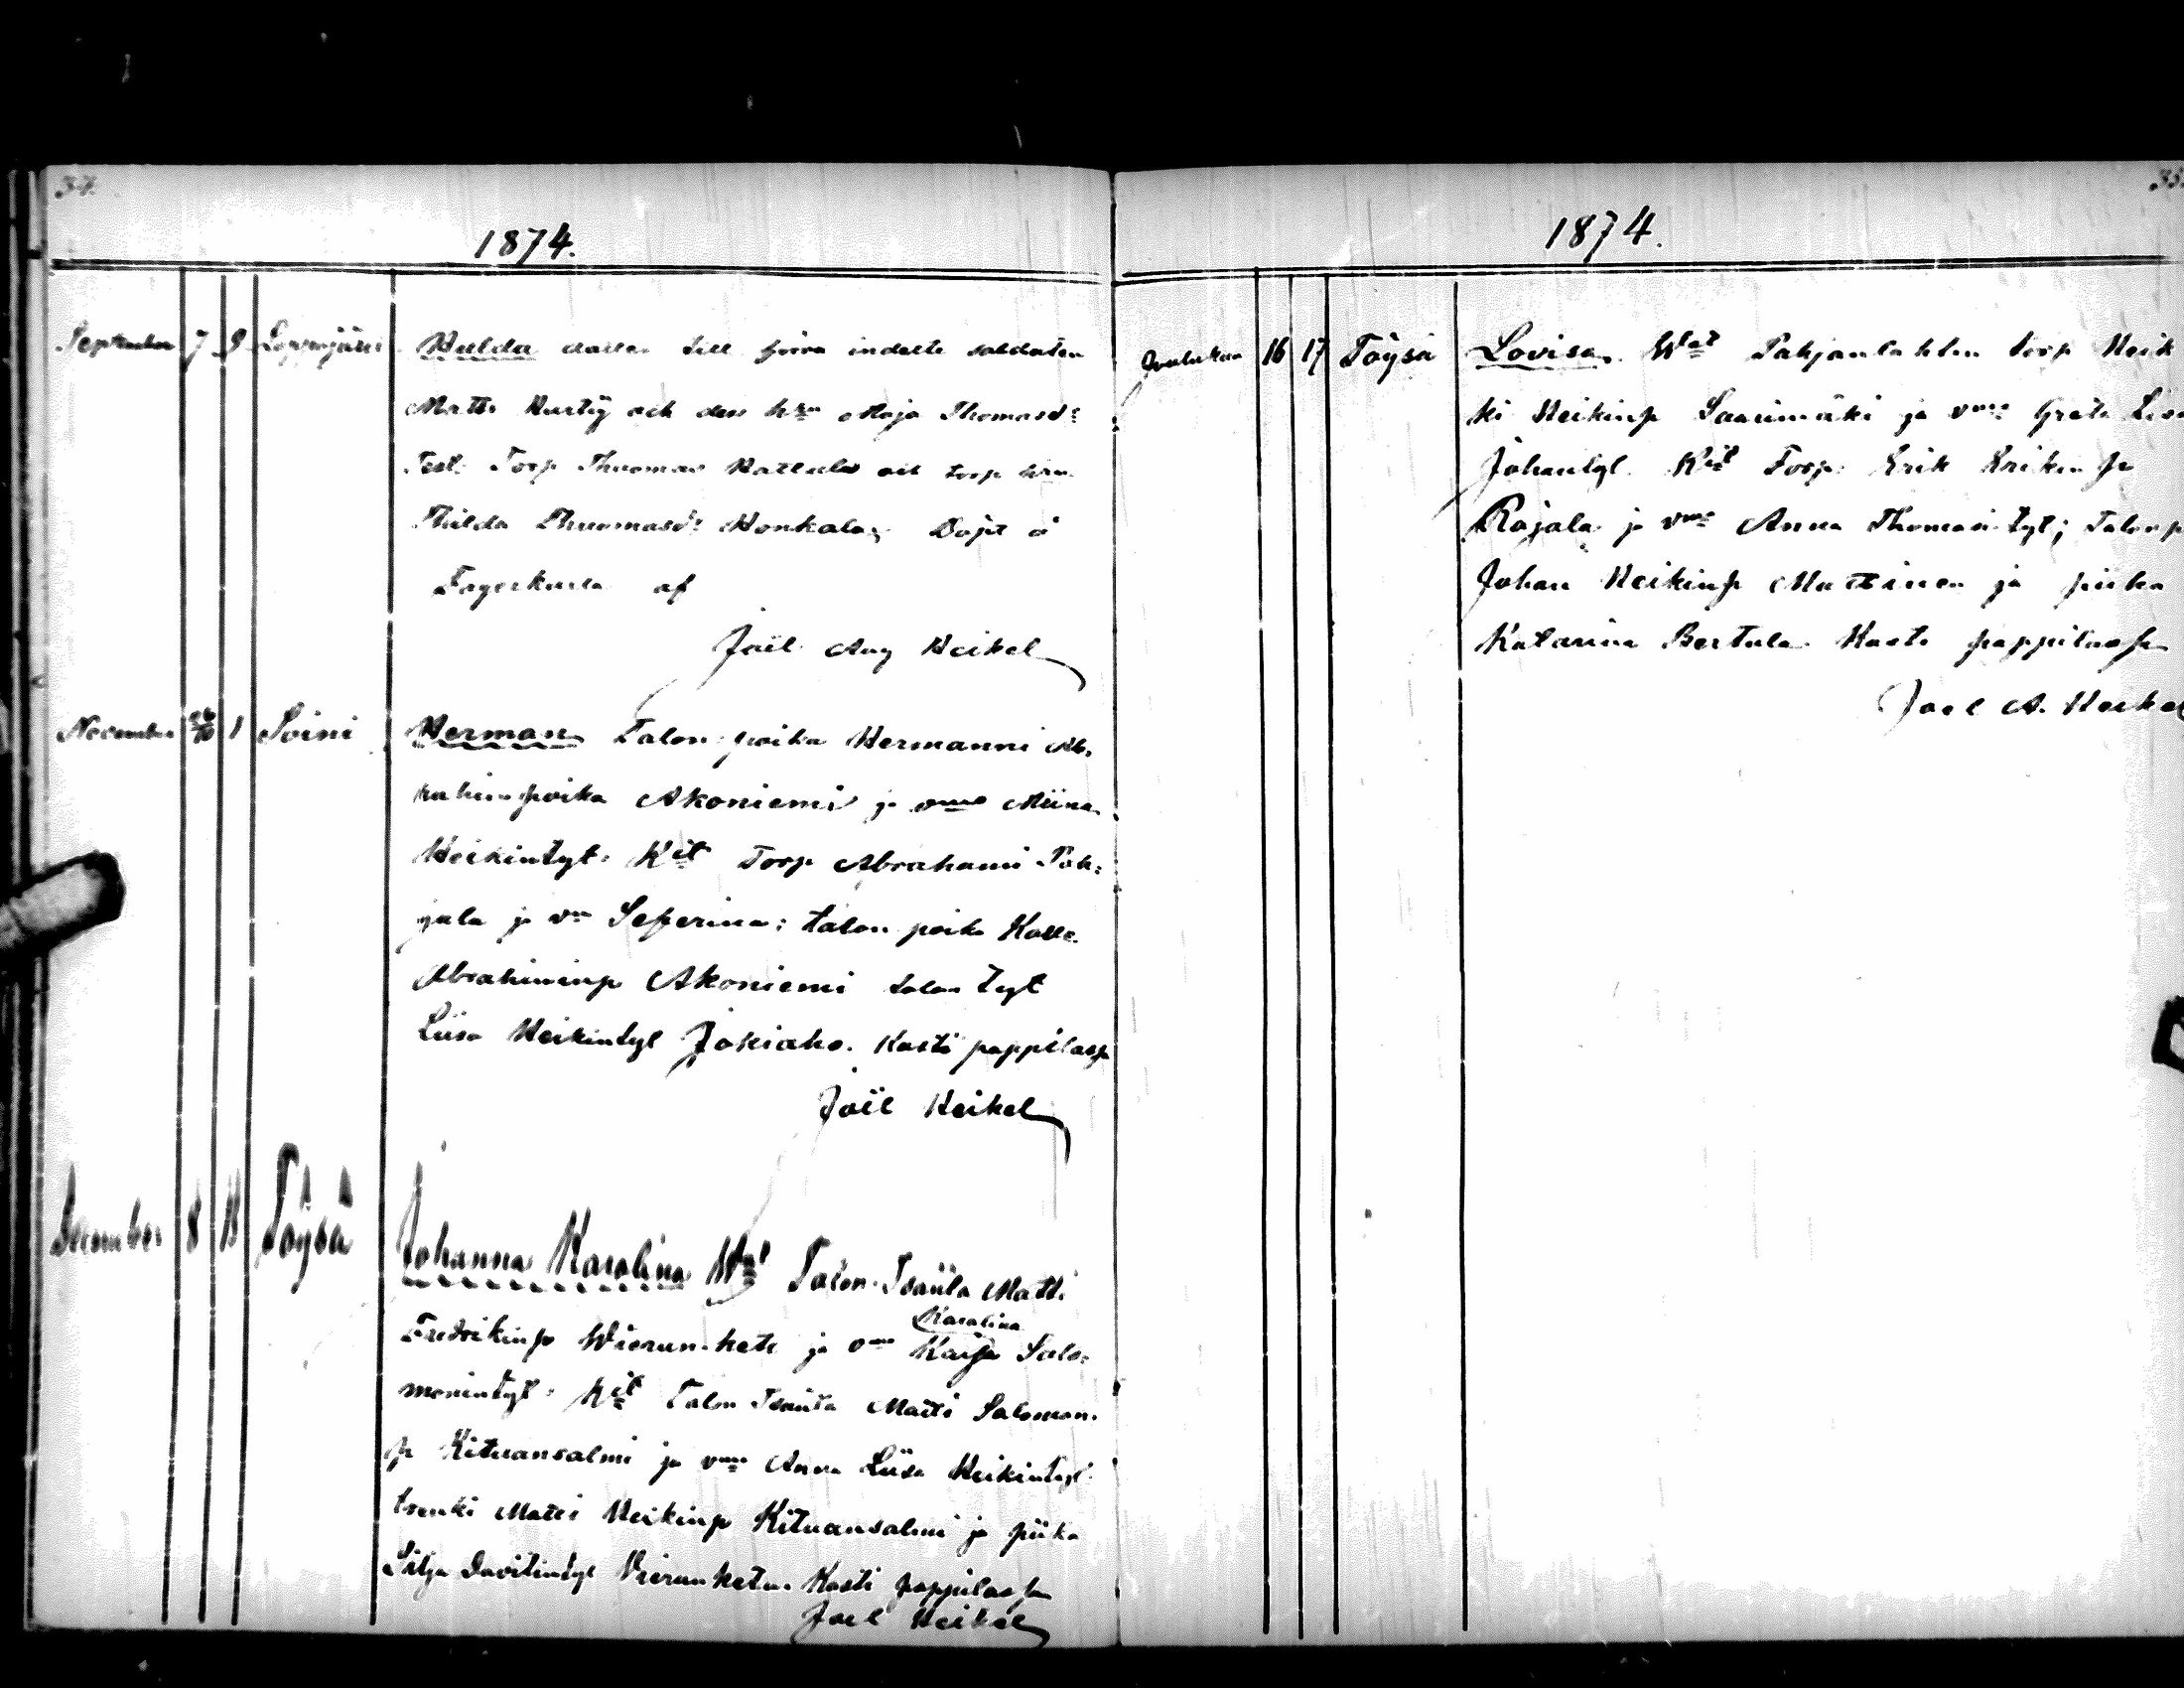 34.
1874.
September 7 9 Lappajärvi Hulda dotter till förra indelte soldaten
Matts Hurtig och dess h:u Maja Thomasd:r
Test. Torp Thuomas ail torp h:u
Thilda Thuomasd:r Honkala; Döpt i
af
Joël Aug Heikel
November 26/10 1 Soini Herman Talon poika Hermanni Ab,
rahinpoika Akoniemi ja vmo Miina
Heikintyt: Kit Torp Abrahami Poh:
jala ja vm Seferina; talon poika Kalle
Abrahiminp Akoniemi talon tyt
Liisa Heikintyt Jokiaho. Kasti pappilassa
Joël Heikel
December 8 13 Töysä Johanna Karolina Wat Talon Isäntä Matti
Karolina
Fredrikinp Wierunketo ja vmo Kaisa Salo:
monintyt: Kit Talon Isäntä Matti Salomon.
p Kituansalmi ja vmo Anna Liisa Heikintyt
trenki Matti Heikinp Kituansalmi ja piika
Silja Davitintyt Vierunketo. Kasti pappilassa
Joel Heikel
35.
1874.
Joulukuu 16 17 Töysä Lovisa. Wat Pohjanlahden torp Heik
ki Heikinp Saarimäki ja vmo Greta Lisa
Johantyt. Kit Torp: Erik Erikinp
Rajala ja vmo Anna Thomasityt; Talonp
Johan Heikinp Mattinen ja piika
Katarina Bertula. Kasti pappilassa
Joel A. Heikel